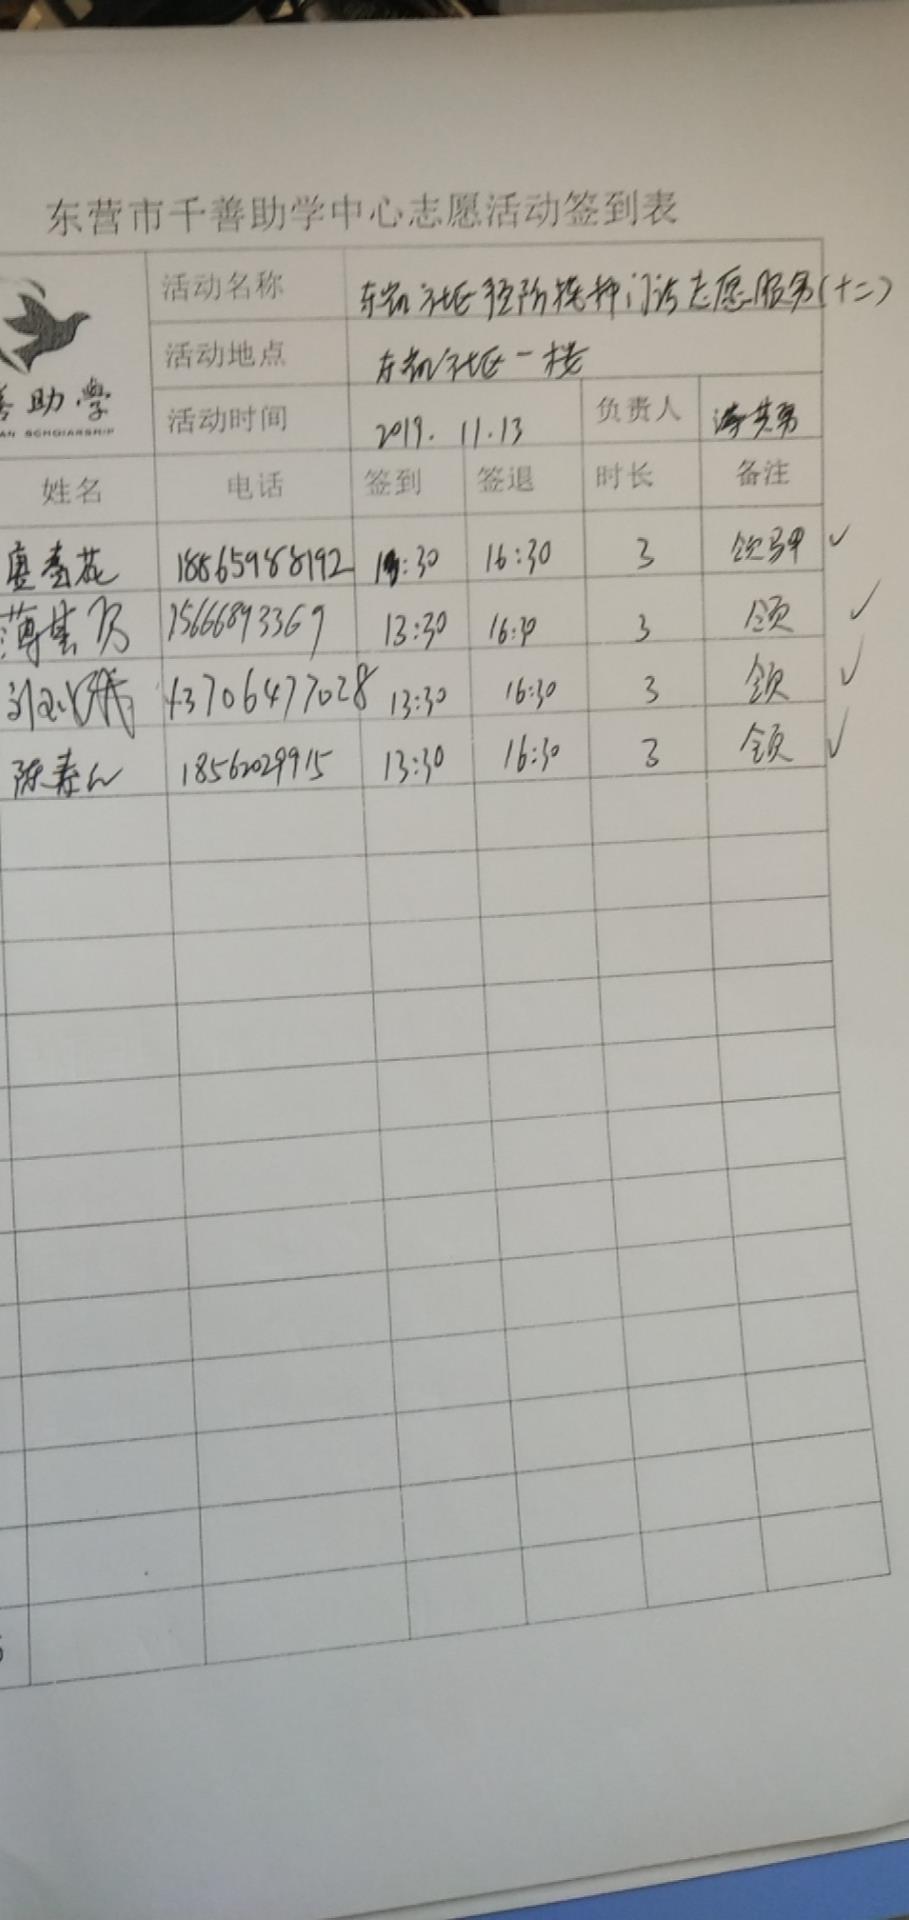 东营市千善助学中心志愿活动签到表
善助學
AN SCHOLARSHIP
活动名称 东凯社区 门诊志愿服务(十二)
活动地点 东凯社区一楼
活动时间 2019.11.13 负责人
姓名 电话 签到 签退 时长 备注
18865988192 13:30 16:30 3 ✓
薄其 15666893369 13:30 16:30 3 领 ✓
13706477028 13:30 16:30 3 领 ✓
陈寿 18562029915 13:30 16:30 3 领 ✓